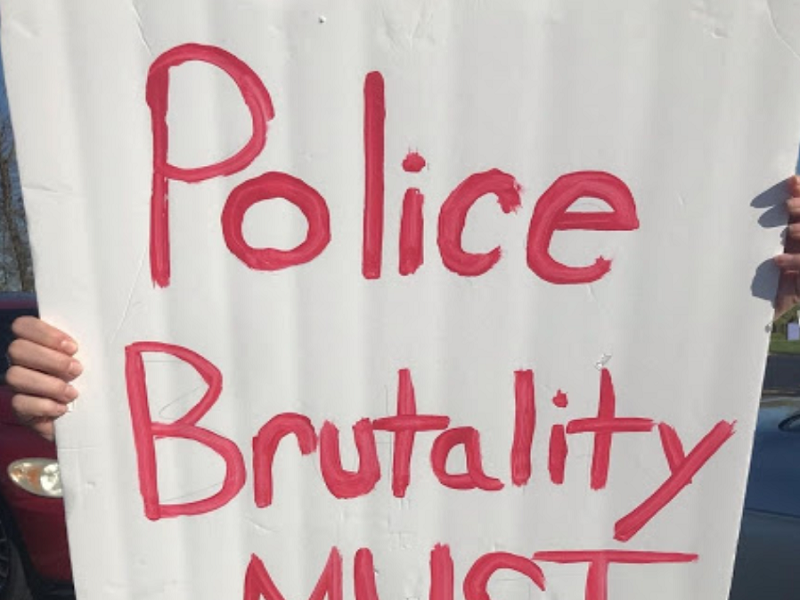 Police
Brutality
MUST